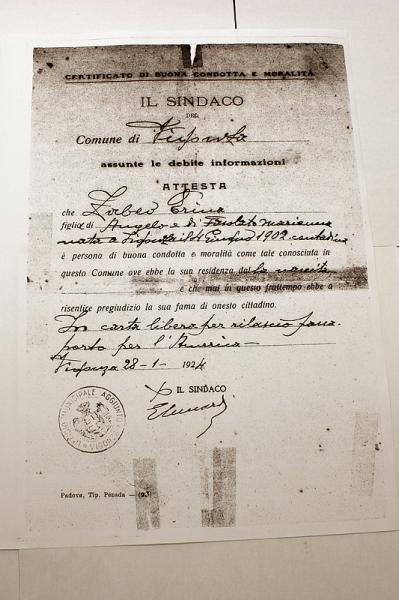 CERTIFICATO DI BUONA CONDOTTA E MORALITÀ
IL SINDACO
DEL
Comune di
assunte le debite informazioni
ATTESTA
che Zorbeo Erina
figlia di Angelo e di Marianna
nata a il 4 Giugno 1902 contadina
è persona di buona condotta e moralità come tale conosciuta in
questo Comune ove ebbe la sua residenza dal la nascita
e che mai in questo frattempo ebbe a
risentire pregiudizio la sua fama di onesto cittadino.
In carta libera per rilascio passa
porto per l'America
28-1-1924
IL SINDACO
Padova, Tip. Penada — (93)